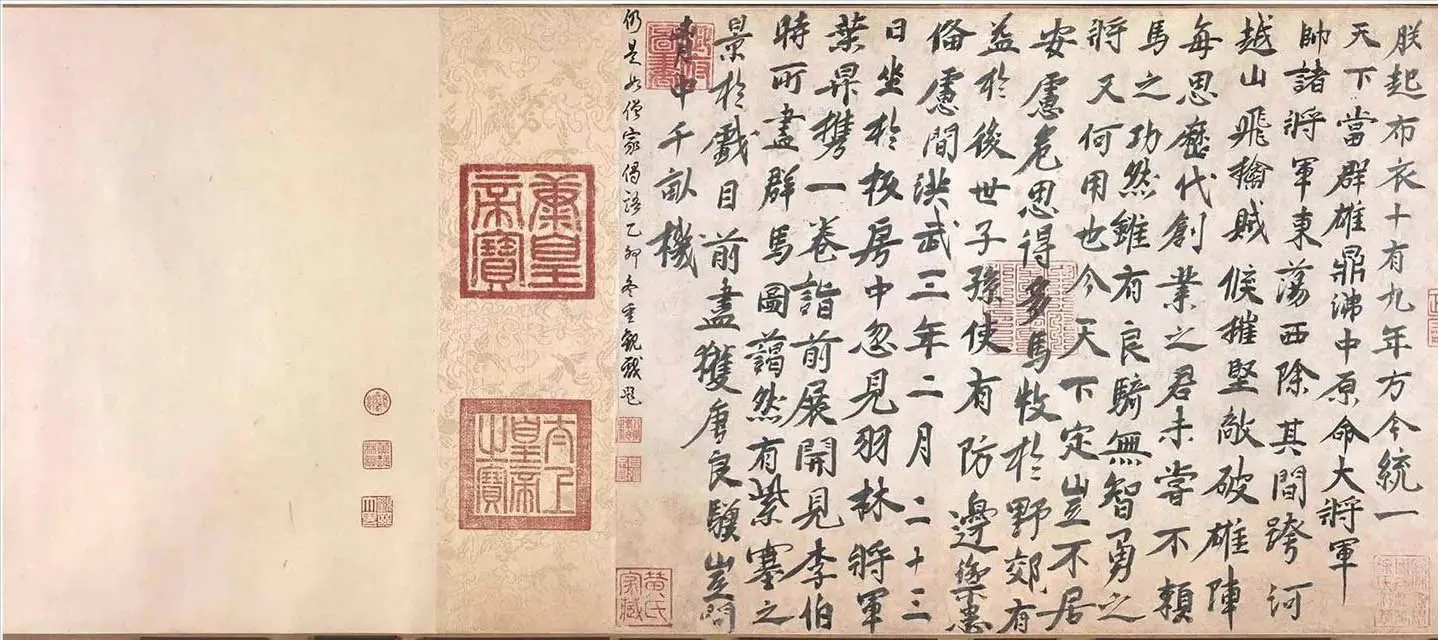 朕起布衣十有九年方今統一
天下當群雄鼎沸中原命大將軍
帥諸將軍東蕩西除其間跨河
越山飛擒賊候摧堅敵破雄陣
每思歷代創業之君未嘗不賴
馬之功然雖有良騎無智勇之
將又何用也今天下定豈不居
安慮危思得多馬牧於野郊有
益於後世子孫使有防邊禦患
俻慮間洪武三年二月二十三
日坐於板房中忽見羽林將軍
葉昇攜一卷詣前展開見李伯
時所畫群馬圖藹然有紫塞之
景於戲目前盡獲唐良驥豈問
胸中千畝機
仍是如僧家偈語乙卯冬重觀戲題
黃氏家藏
太上皇帝之寶